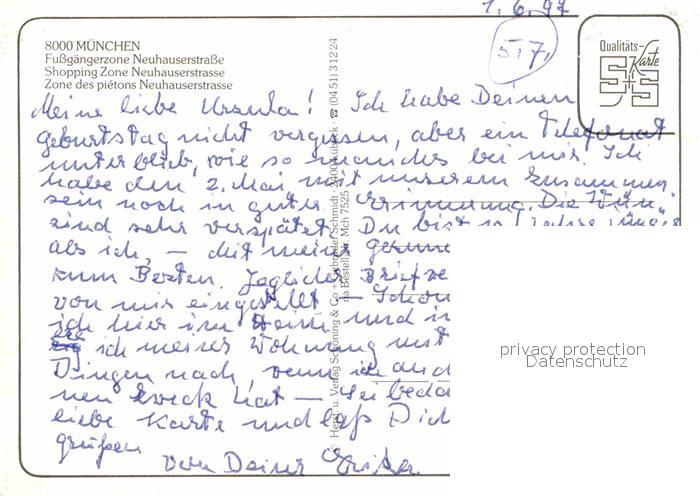 1.6.97
5.7.
8000 MÜNCHEN
Fußgängerzone Neuhauserstraße
Shopping Zone Neuhauserstrasse
Zone des piétons Neuhauserstrasse
Qualitäts-
Karte
S+S
Meine liebe Ursula! Ich habe Deinen
Geburtstag nicht vergessen, aber ein Telefonat
unterblieb, wie so manches bei mir. Ich
habe den 2. Mai mit unserem Zusammen-
sein noch in guter Erinnerung. Die Wün-
sind sehr verspätet. Du bist 10 Jahre jünger
als ich, – mit meiner
zum Besten. Jeglicher
von mir eingestellt – Schon
ich hier im Heim und
ich meiner Wohnung mit
Dingen nach, wenn
nen Zweck hat – Sei
liebe Karte und laß Dich
grüßen
von Deiner Erika.
Herst. u. Verlag Schöning & Co + Gebrüder Schmidt · 2400 Lübeck · ☎ (0451) 31224
na Bestell-Nr. Mch 7525
privacy protection
Datenschutz